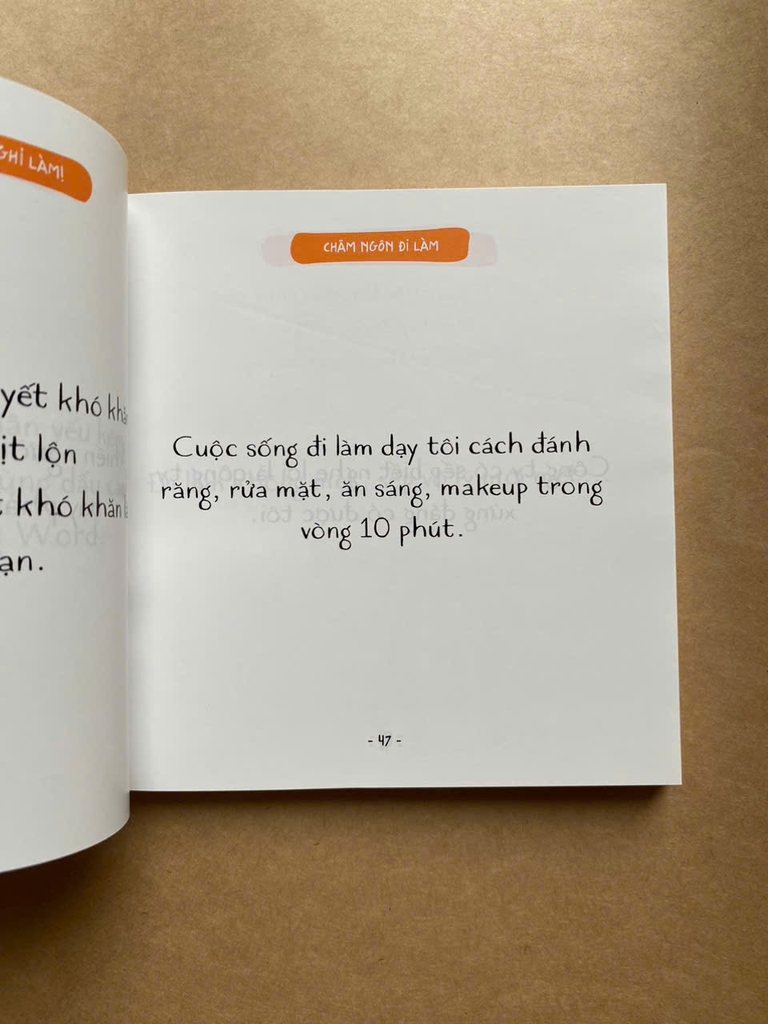 GHỈ LÀM!
yết khó
ịt lộn
khó khăn
ạn.
CHÂM NGÔN ĐI LÀM
Cuộc sống đi làm dạy tôi cách đánh
răng, rửa mặt, ăn sáng, makeup trong
vòng 10 phút.
- 47 -